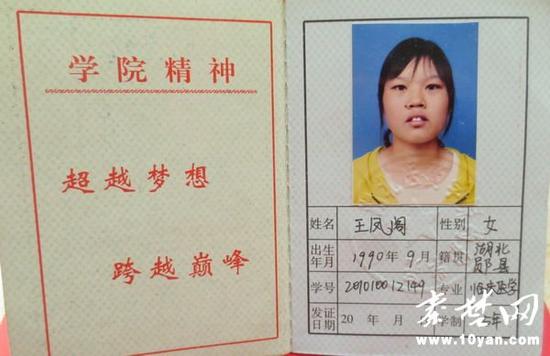 学院精神
超越梦想
跨越巅峰
姓名 王凤阁 性别 女
出生年月 1990年9月 籍贯 湖北郧县
学号 201010012749 专业 临床医学
发证日期 20 年 月 学制 年
秦楚网
www.10yan.com